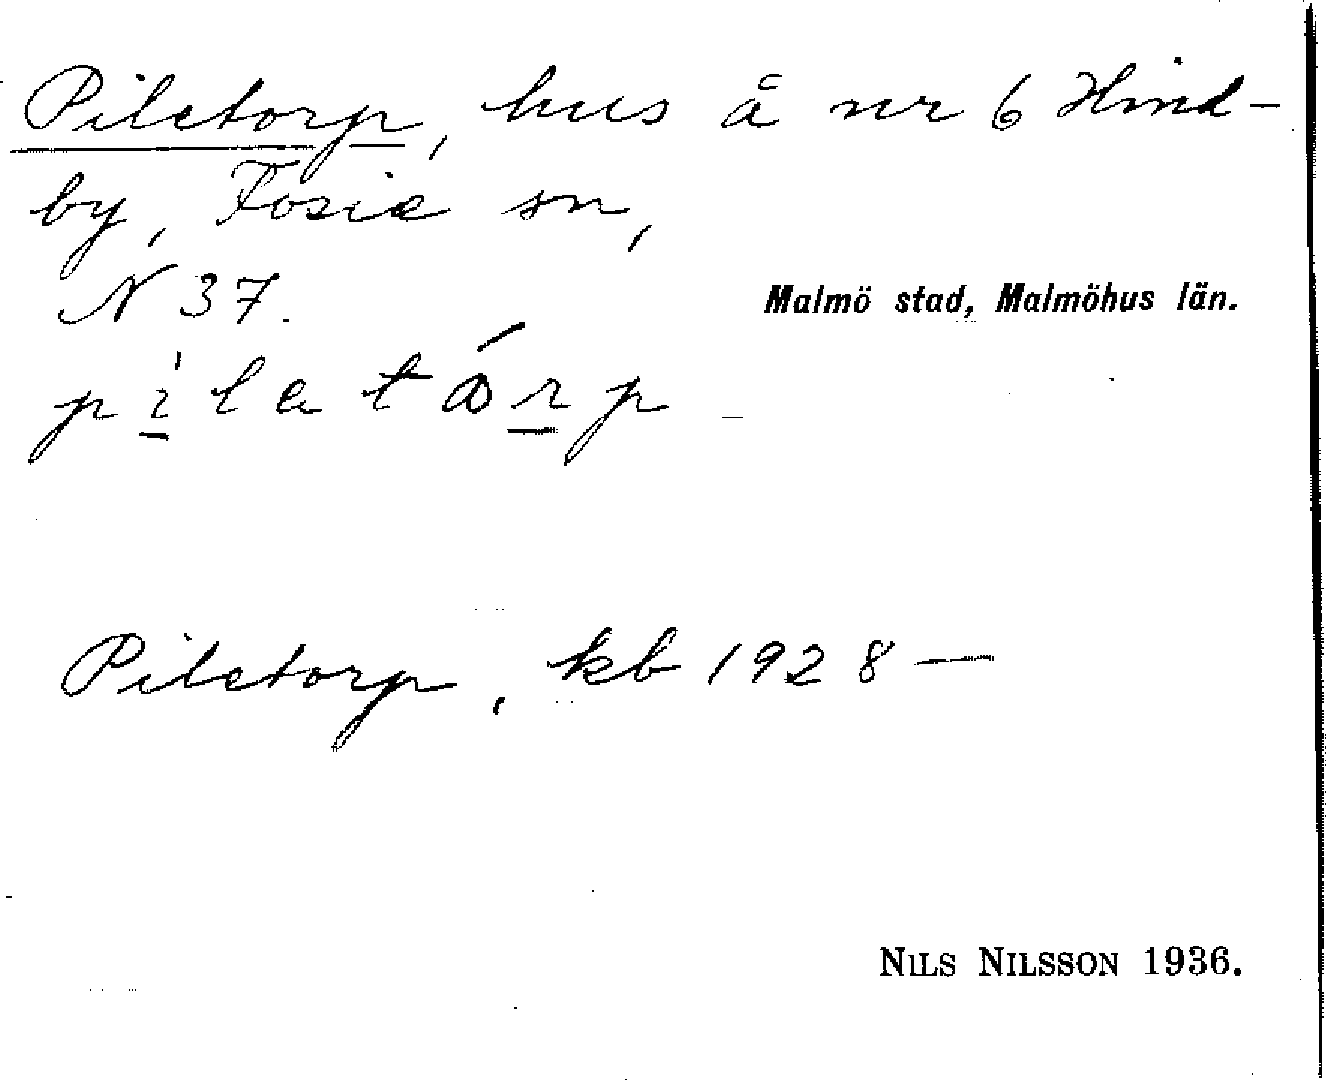 Piletorp, hus å nr 6 Hind-
by, Fosie sn,
N 37.
Malmö stad, Malmöhus län.
Piletorp, kb 1928 —
NILS NILSSON 1936.